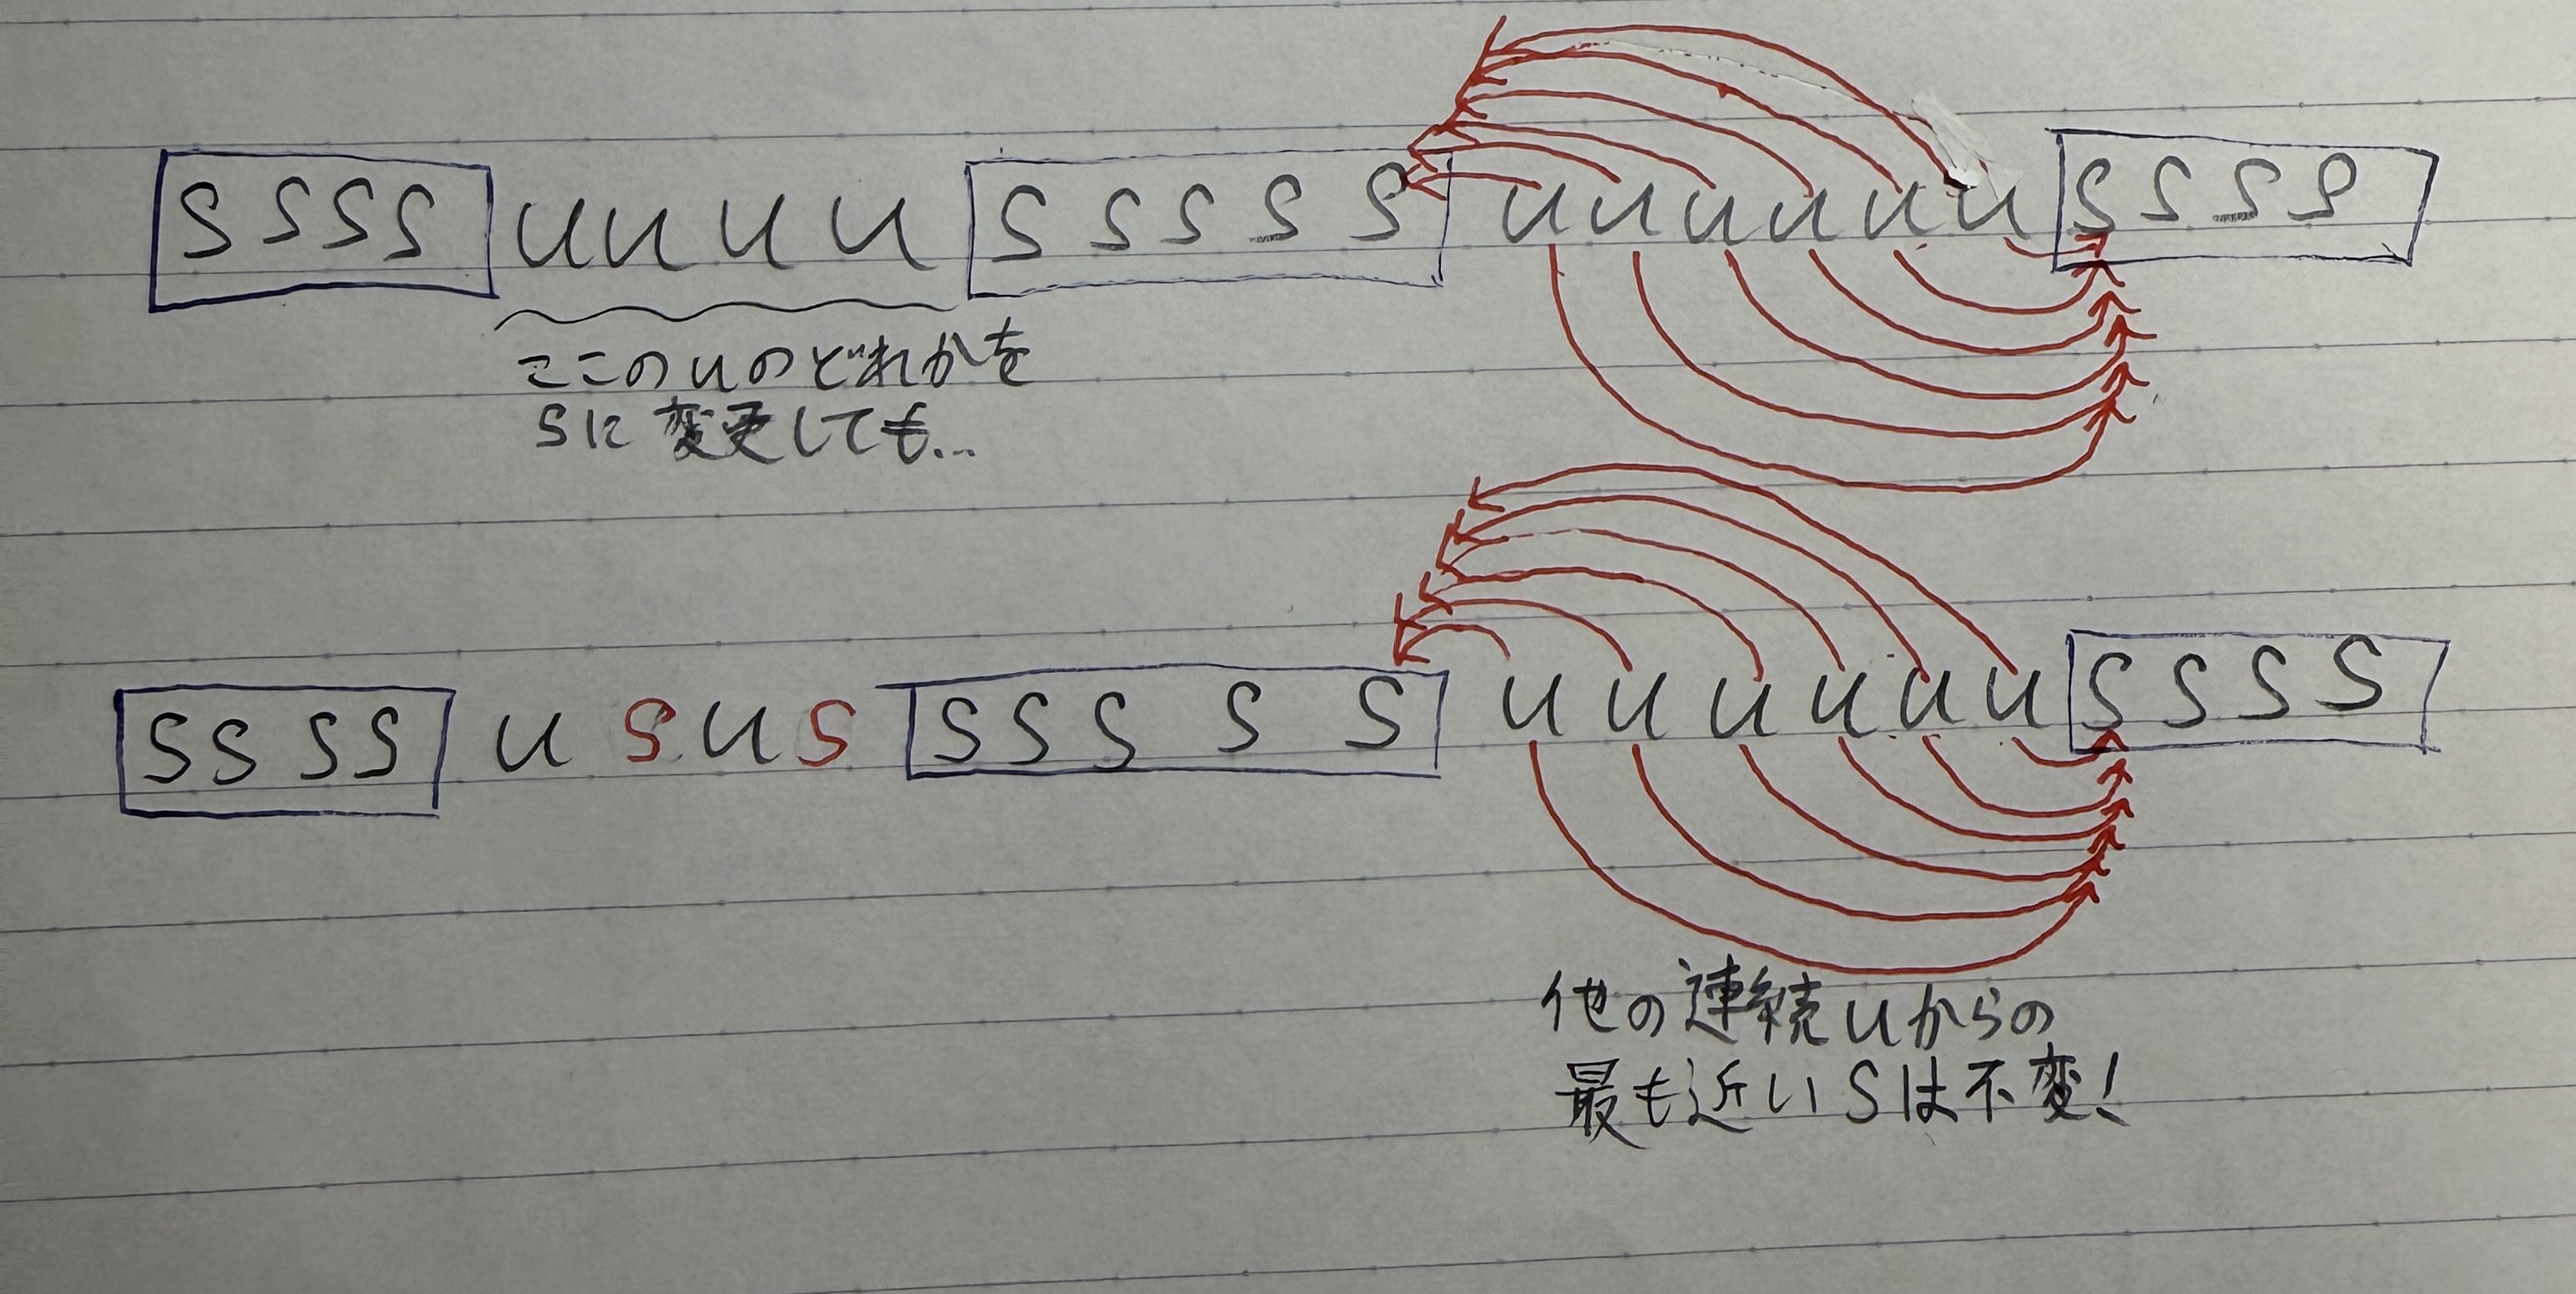 SSSS uuuu SSSSS uuuuuu SSSS
ここのuのどれかを
Sに変更しても…
SSSS uSuS SSSSS uuuuuu SSSS
他の連続uからの
最も近いSは不変!